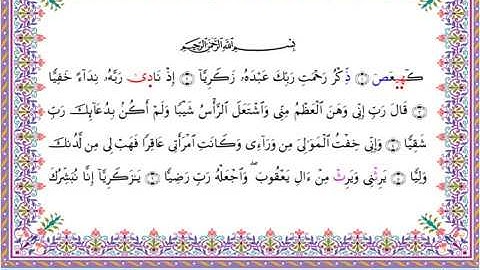 بِسْمِ ٱللَّهِ ٱلرَّحْمَٰنِ ٱلرَّحِيمِ
كٓهيعٓصٓ ۝١ ذِكْرُ رَحْمَتِ رَبِّكَ عَبْدَهُۥ زَكَرِيَّآ ۝٢ إِذْ نَادَىٰ رَبَّهُۥ نِدَآءً خَفِيًّا
۝٣ قَالَ رَبِّ إِنِّى وَهَنَ ٱلْعَظْمُ مِنِّى وَٱشْتَعَلَ ٱلرَّأْسُ شَيْبًا وَلَمْ أَكُنۢ بِدُعَآئِكَ رَبِّ
شَقِيًّا ۝٤ وَإِنِّى خِفْتُ ٱلْمَوَٰلِىَ مِن وَرَآءِى وَكَانَتِ ٱمْرَأَتِى عَاقِرًا فَهَبْ لِى مِن لَّدُنكَ
وَلِيًّا ۝٥ يَرِثُنِى وَيَرِثُ مِنْ ءَالِ يَعْقُوبَ ۖ وَٱجْعَلْهُ رَبِّ رَضِيًّا ۝٦ يَٰزَكَرِيَّآ إِنَّا نُبَشِّرُكَ